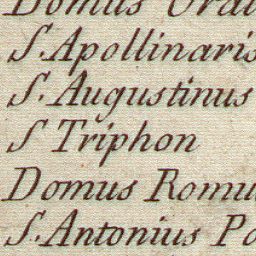 Domus
S. Apollinaris
S. Augustinus
S Triphon
Domus
S. Antonius